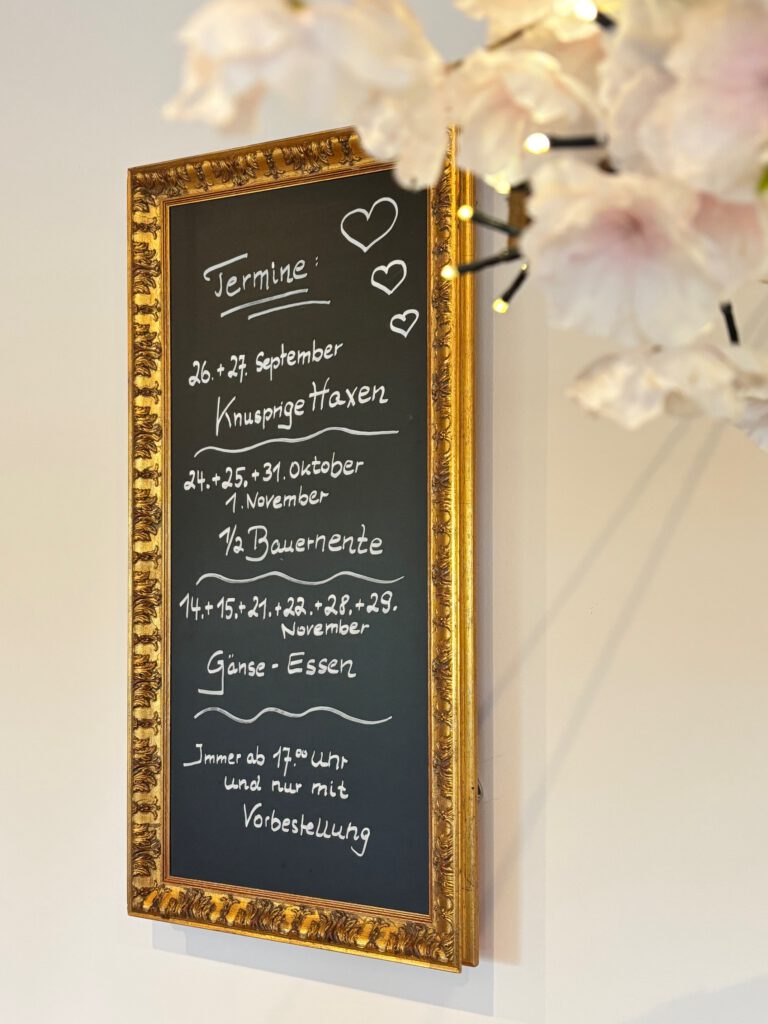 Termine:
26.+27. September
Knusprige Haxen
24.+25.+31. Oktober
1. November
1/2 Bauernente
14.+15.+21.+22.+28.+29.
November
Gänse-Essen
Immer ab 17.⁰⁰ Uhr
und nur mit
Vorbestellung